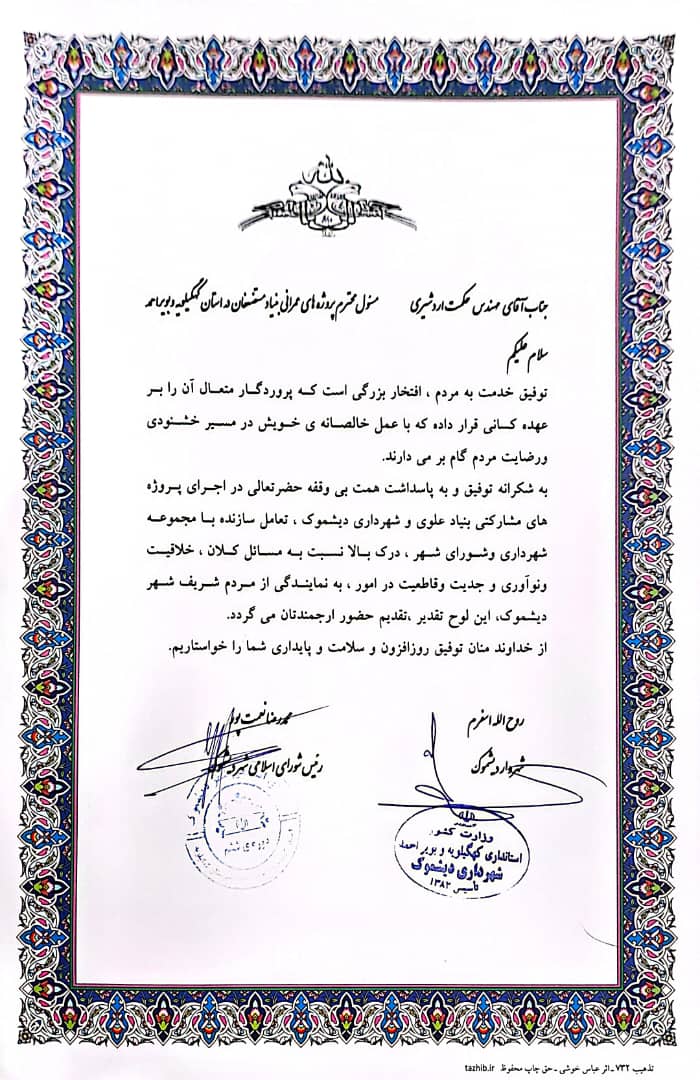 جناب آقای مهندس حکمت اردشیری    مسئول محترم پروژه های عمرانی بنیاد مستضعفان در استان کهگیلویه و بویراحمد
سلام علیکم
توفیق خدمت به مردم ، افتخار بزرگی است که پروردگار متعال آن را بر
عهده کسانی قرار داده که با عمل خالصانه ی خویش در مسیر خشنودی
ورضایت مردم گام بر می دارند.
به شکرانه توفیق و به پاسداشت همت بی وقفه حضرتعالی در اجرای پروژه
های مشارکتی بنیاد علوی و شهرداری دیشموک ، تعامل سازنده با مجموعه
شهرداری وشورای شهر ، درک بالا نسبت به مسائل کلان ، خلاقیت
ونوآوری و جدیت وقاطعیت در امور ، به نمایندگی از مردم شریف شهر
دیشموک، این لوح تقدیر ،تقدیم حضور ارجمندتان می گردد.
از خداوند منان توفیق روزافزون و سلامت و پایداری شما را خواستاریم.
روح الله اسفرم
شهردار دیشموک
محمدرضا نعمت پور
رئیس شورای اسلامی شهر دیشموک
وزارت کشور
استانداری کهگیلویه و بویر احمد
شهرداری دیشموک
تأسیس ۱۳۸۲
دوره ی ششم
تذهیب ۷۳۲ ـ اثر عباس خوشی ـ حق چاپ محفوظ tazhib.ir